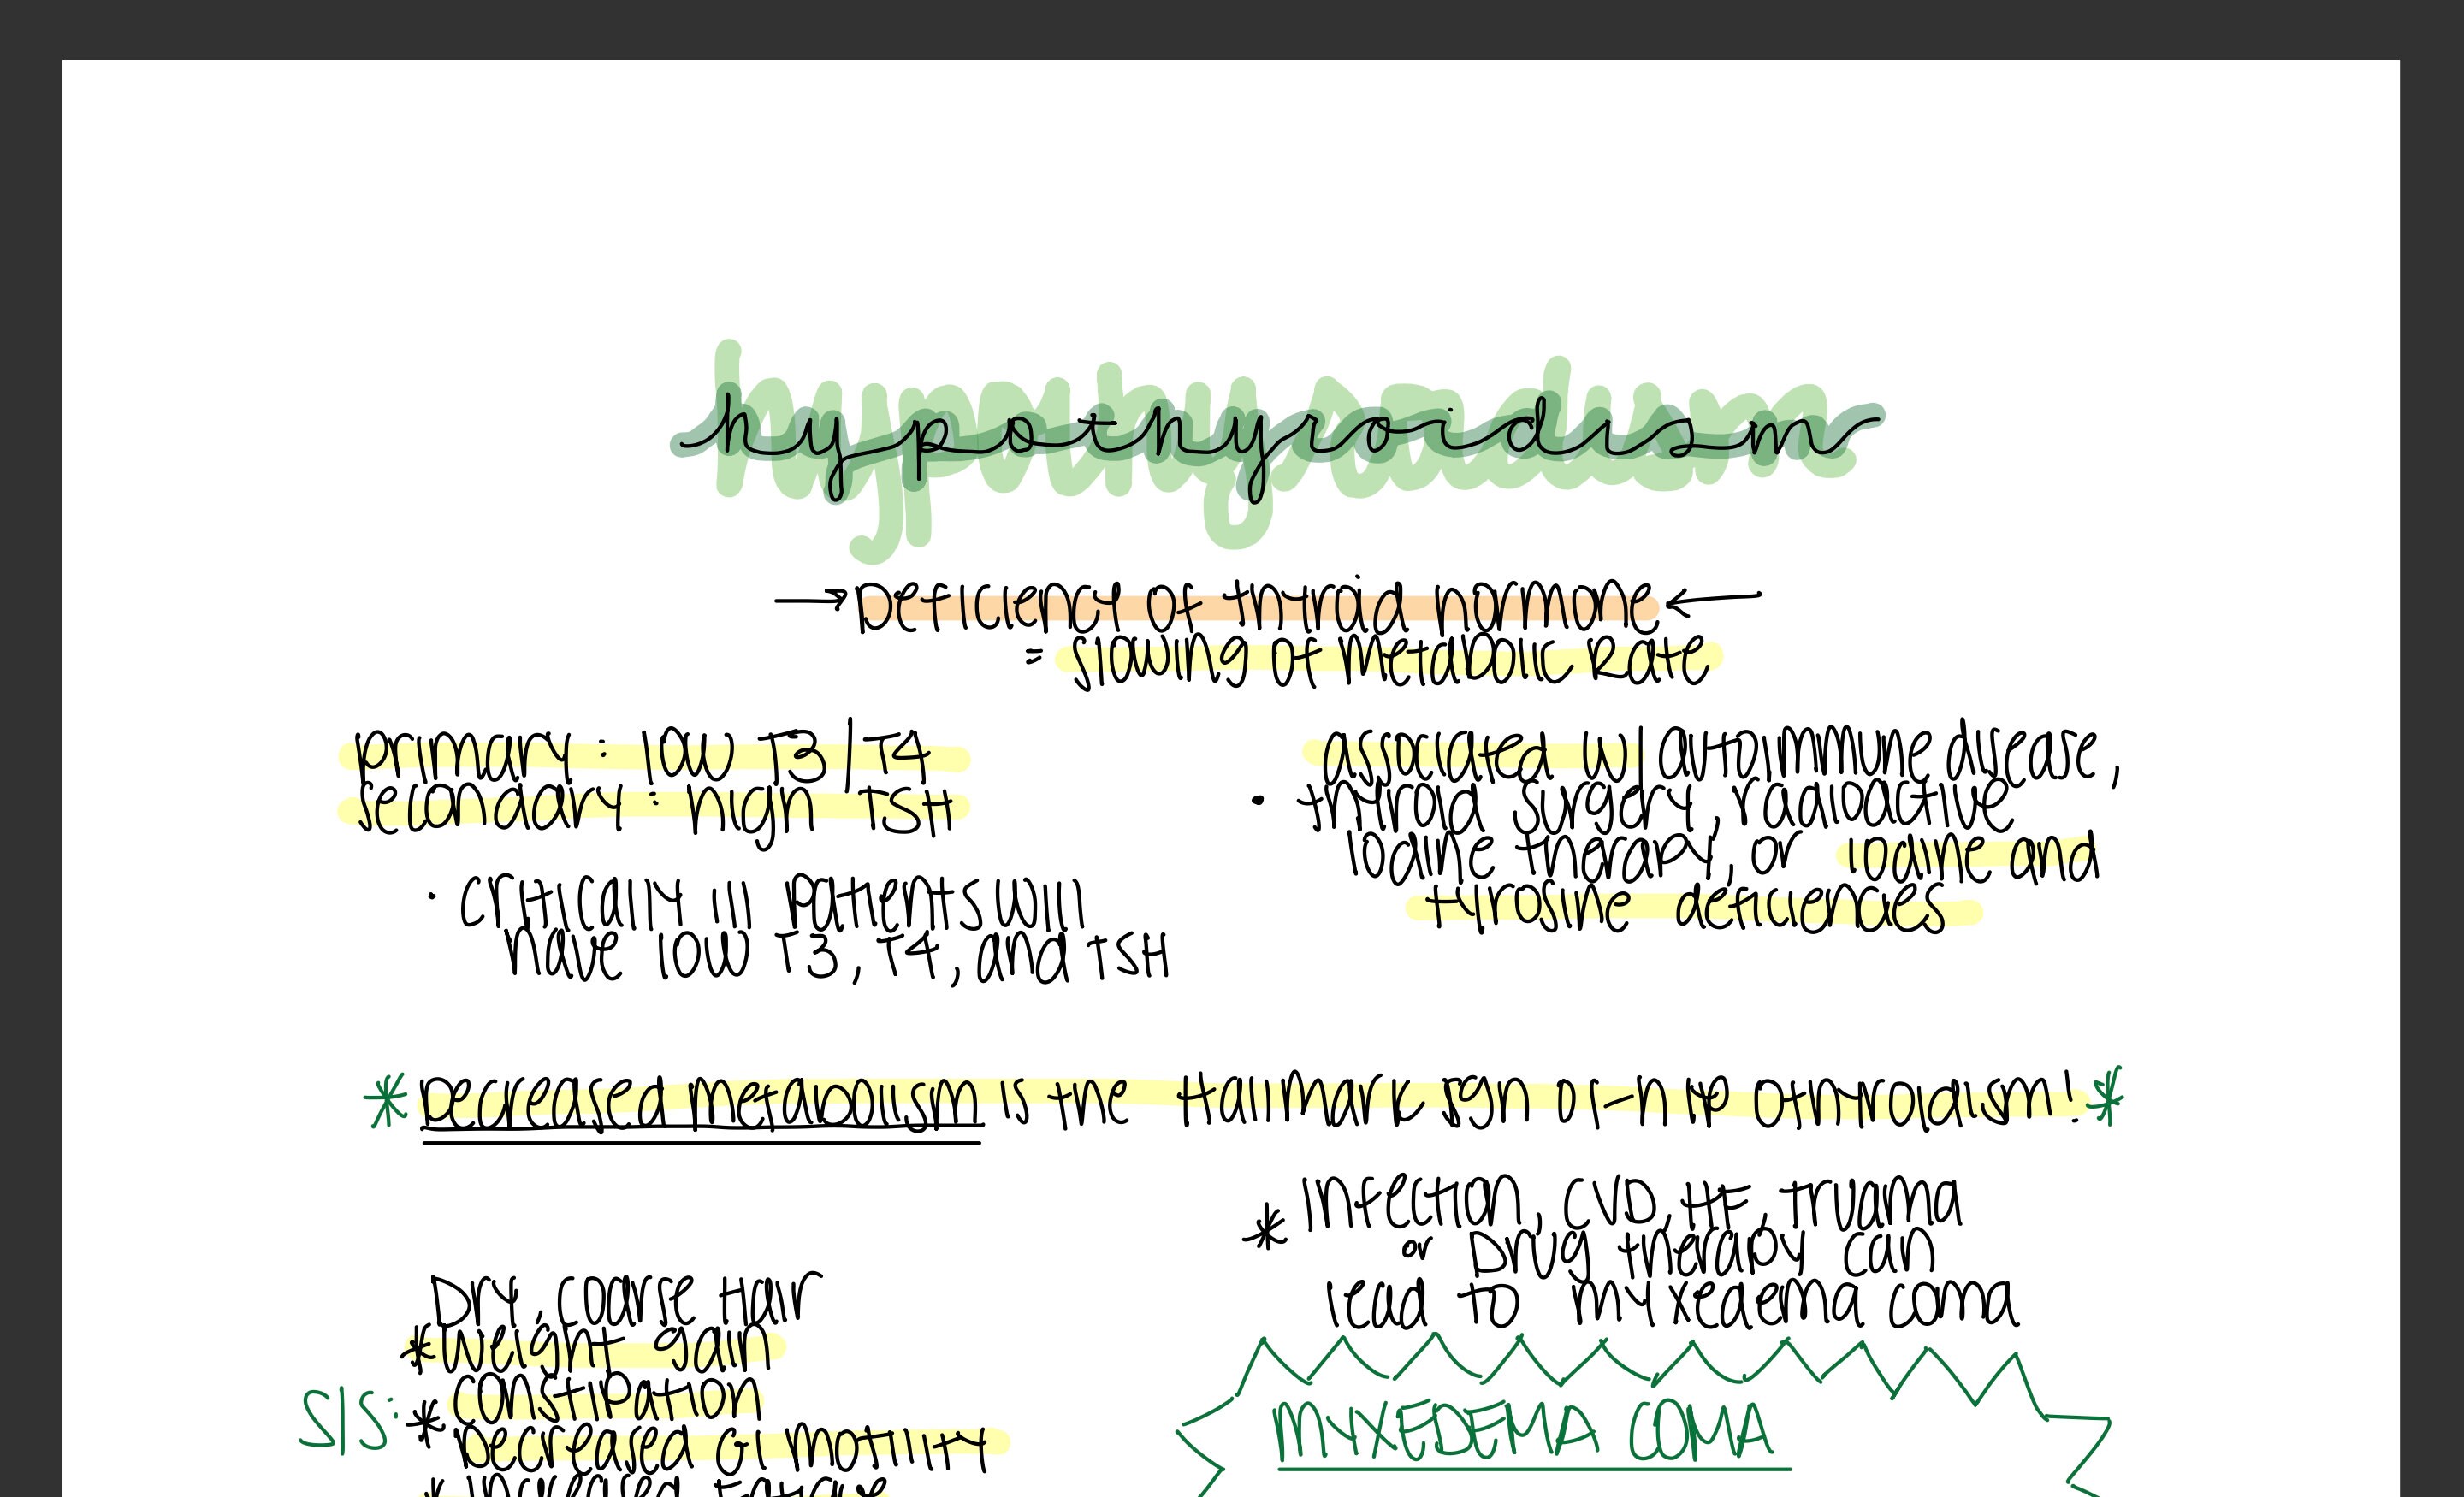 hypothyroidism
→ Deficiency of thyroid hormone ←
= slowing of metabolic rate
Primary: low T3/T4
Secondary: high TSH
· critically ill patients will
have low T3, T4, and TSH
associated w/ autoimmune disease,
· thyroid surgery, radioactive
iodine therapy, or iodine and
tyrosine deficiencies
* Decreased metabolism is the hallmark sign of hypothyroidism! *
* infection, CVD, HF, truama
or Drug therapy can
lead to myxedema coma
Dry, coarse hair
* weight gain
S/S: * constipation
* Decreased GI motility
MYXEDEMA COMA